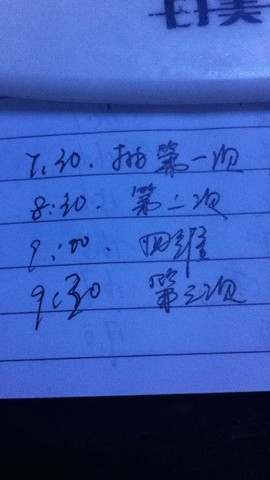 7:30. 抽第一次
8:30. 第二次
9:00. 四维
9:30 第三次